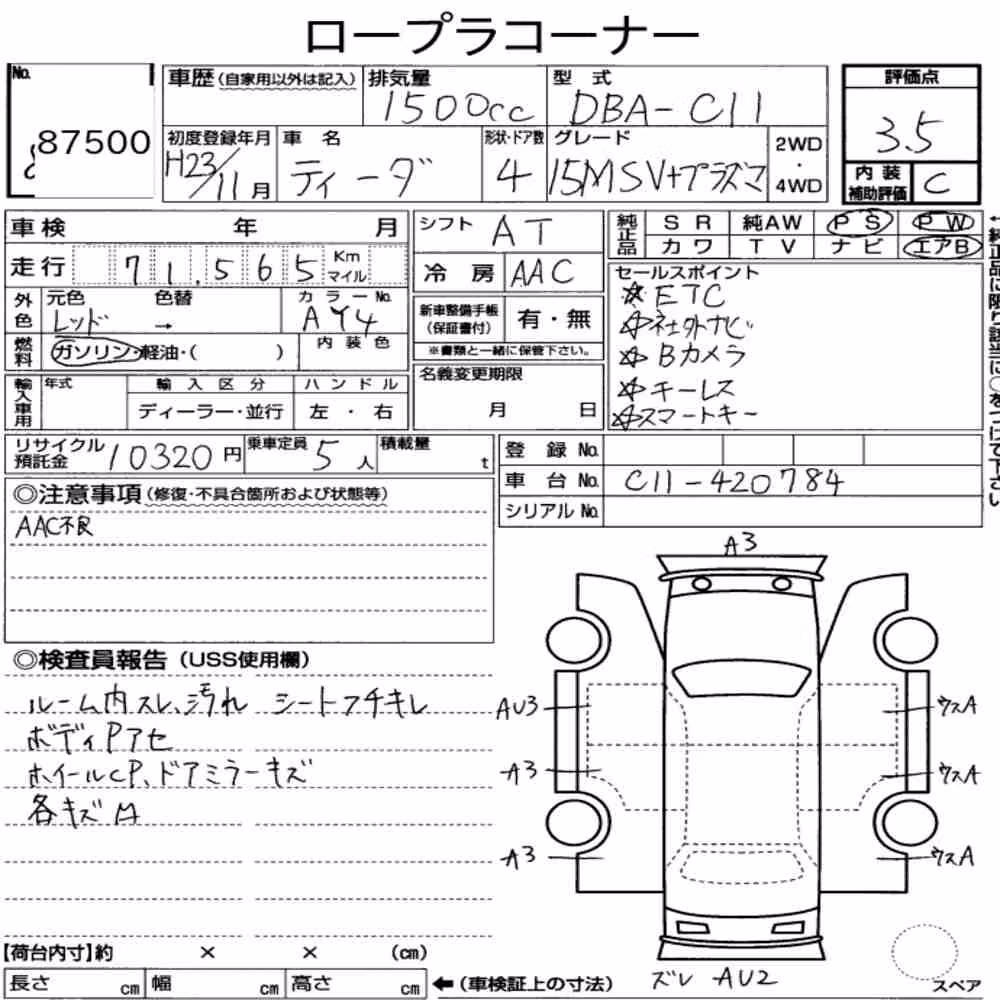 ロープラコーナー
No.
87500
車歴 (自家用以外は記入)
排気量
1500cc
型式
DBA-C11
評価点
3.5
初度登録年月
H23/11月
車名
ティーダ
形状・ドア数
4
グレード
15MSV+プラズマ
2WD
・
4WD
内装
補助評価
C
車検 年 月
シフト AT
純正品
SR 純AW PS PW
カワ TV ナビ エアB
走行 71,565 Km
マイル
冷房 AAC
セールスポイント
☆ETC
☆社外ナビ
☆Bカメラ
☆キーレス
☆スマートキー
外色
元色 色替
レッド →
カラーNo.
AY4
新車整備手帳
(保証書付)
有・無
※書類と一緒に保管下さい。
燃料
ガソリン・軽油・( )
内装色
名義変更期限
月 日
輸入車用
年式
輸入区分
ディーラー・並行
ハンドル
左・右
←純正品に限り該当に○をつけて下さい
リサイクル
預託金
10320円
乗車定員 5人
積載量 t
登録No.
車台No. C11-420784
シリアルNo.
◎注意事項(修復・不具合箇所および状態等)
AAC不良
◎検査員報告(USS使用欄)
ルーム内スレ、汚れ シートフチキレ
ボディPアセ
ホイールCP、ドアミラーキズ
各キズ凹
A3
AU3
ウスA
A3
ウスA
A3
ウスA
ズレ AU2
スペア
【荷台内寸】約 × × (cm)
長さ cm 幅 cm 高さ cm ←(車検証上の寸法)